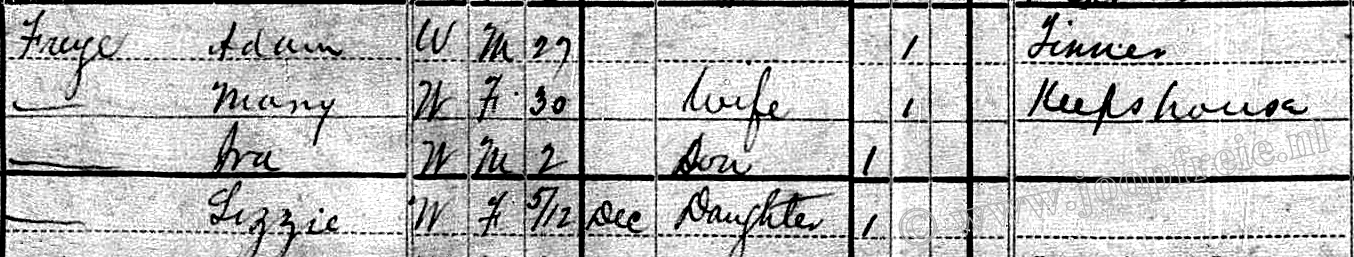 Freye Adam W M 27 1 Tinner
— Mary W F 30 Wife 1 Keeps house
— Ira W M 2 Son 1
— Lizzie W F 5/12 Dec Daughter 1
© www.joopfreie.nl